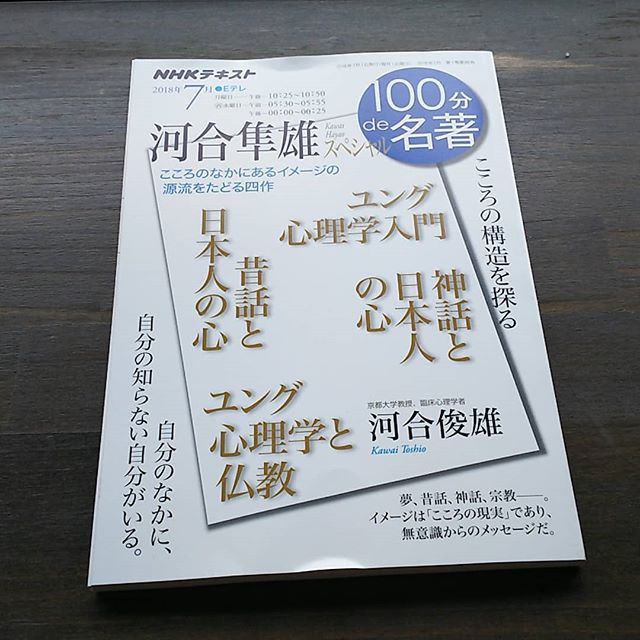 NHKテキスト
2018年7月
Eテレ
月曜日 午後 10:25〜10:50
水曜日 午前 05:30〜05:55
午後 00:00〜00:25
100分
de名著
河合隼雄
Kawai
Hayao
スペシャル
こころのなかにあるイメージの
源流をたどる四作
こころの構造を探る
ユング
心理学入門
昔話と
日本人の心
神話と
日本人
の心
ユング
心理学と
仏教
京都大学教授、臨床心理学者
河合俊雄
Kawai Toshio
自分のなかに、
自分の知らない自分がいる。
夢、昔話、神話、宗教――。
イメージは「こころの現実」であり、
無意識からのメッセージだ。